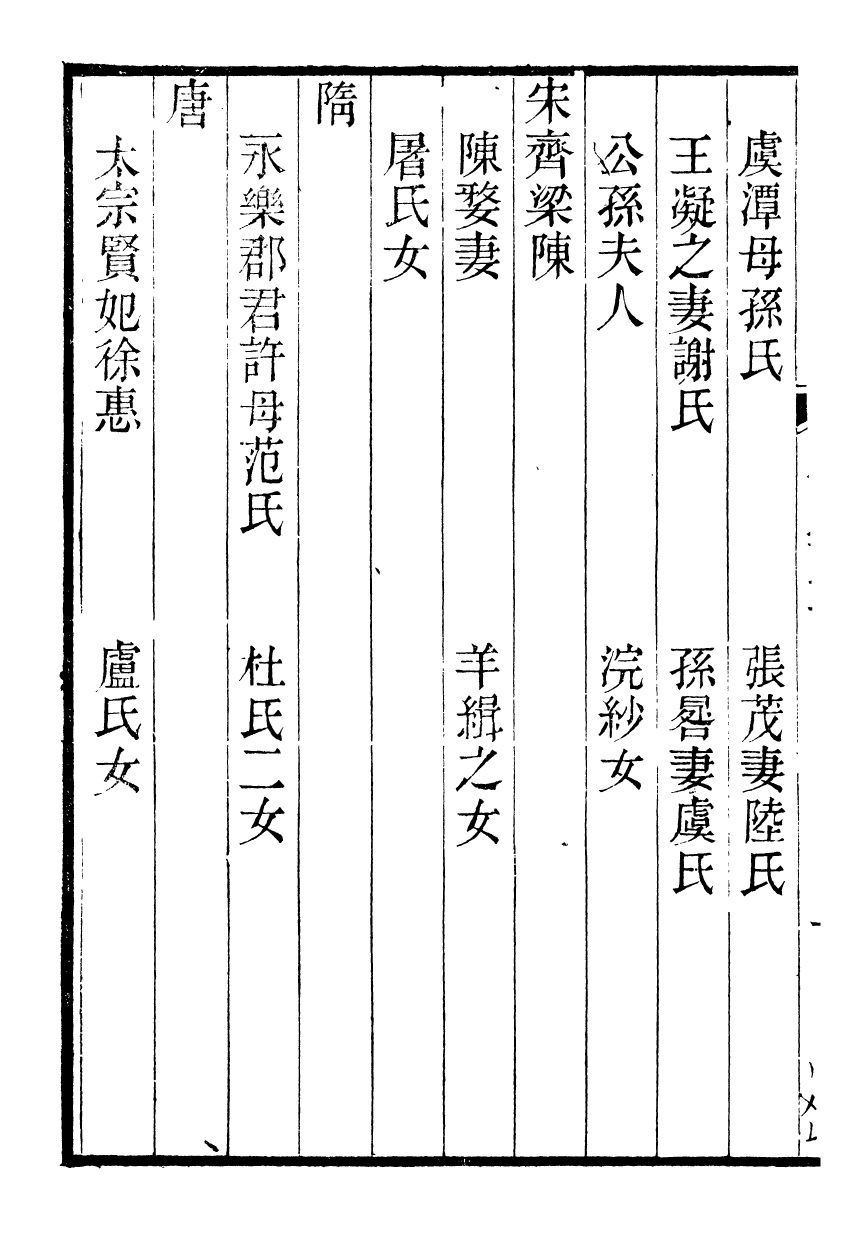 虞潭母孫氏　張茂妻陸氏
王凝之妻謝氏　孫晷妻虞氏
公孫夫人　浣紗女
宋齊梁陳
陳婺妻　羊緝之女
屠氏女
隋
永樂郡君許母范氏　杜氏二女
唐
太宗賢妃徐惠　盧氏女